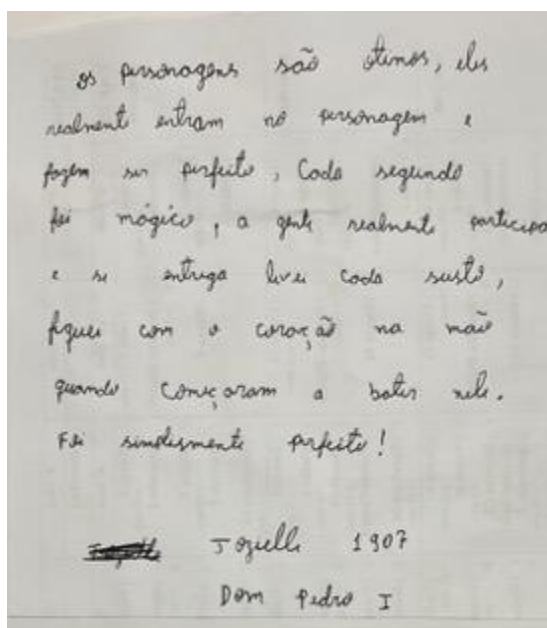 os personagens são otimos, eles
realmente entram no personagem e
fazem ser perfeito, Cada segundo
foi mágico, a gente realmente participa
e se entrega levei cada susto,
fiquei com o coração na mão
quando começaram a bater nele.
Foi simplesmente perfeito!
Jozielle 1907
Dom Pedro I